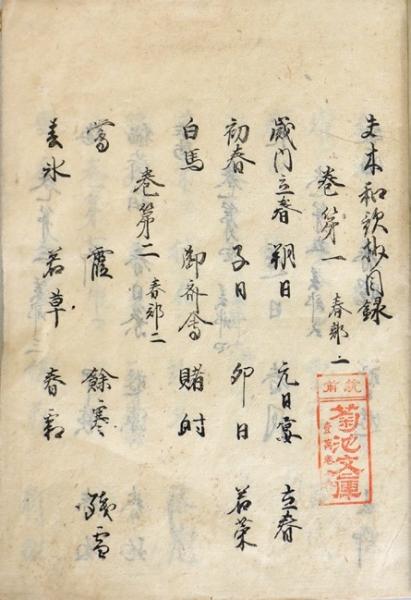 夫木和歌抄目録
巻第一 春部一
歳内立春 朔日 元日宴 立春
初春 子日 卯日 若菜
白馬 御斎會 賭射
巻第二 春部二
鶯 霞 餘寒 残雪
春氷 若草 春霜
筑前
菊池文庫